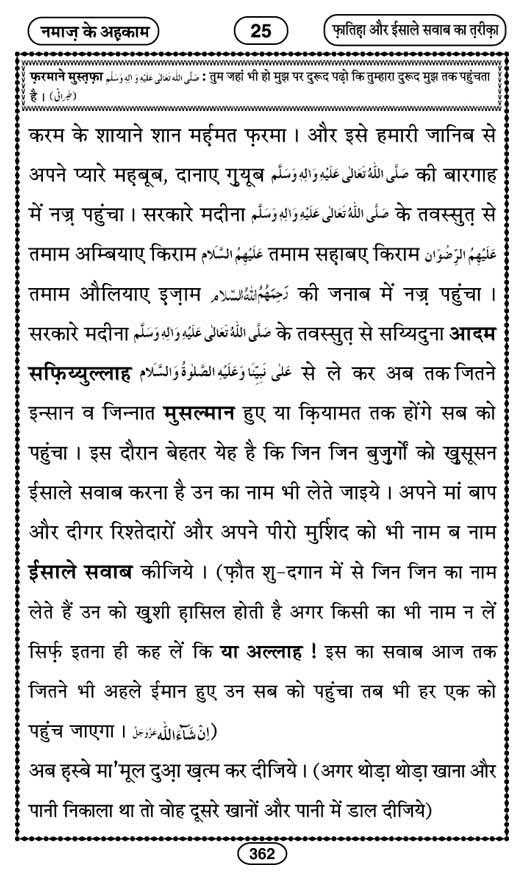 नमाज़ के अहकाम
25
फ़ातिहा और ईसाले सवाब का त़रीक़ा
फ़रमाने मुस्तफ़ा صَلَّى اللهُ تَعَالٰى عَلَيْهِ وَاٰلِهٖ وَسَلَّم : तुम जहां भी हो मुझ पर दुरूद पढ़ो कि तुम्हारा दुरूद मुझ तक पहुंचता
है । (طبرانی)
करम के शायाने शान मर्हमत फ़रमा । और इसे हमारी जानिब से
अपने प्यारे महबूब, दानाए ग़ुयूब صَلَّى اللهُ تَعَالٰى عَلَيْهِ وَاٰلِهٖ وَسَلَّم की बारगाह
में नज़्र पहुंचा । सरकारे मदीना صَلَّى اللهُ تَعَالٰى عَلَيْهِ وَاٰلِهٖ وَسَلَّم के तवस्सुत़ से
तमाम अम्बियाए किराम عَلَيْهِمُ السَّلَام तमाम सह़ाबए किराम عَلَيْهِمُ الرِّضْوَان
तमाम औलियाए इज़ाम رَحِمَهُمُ اللهُ السَّلَام की जनाब में नज़्र पहुंचा ।
सरकारे मदीना صَلَّى اللهُ تَعَالٰى عَلَيْهِ وَاٰلِهٖ وَسَلَّم के तवस्सुत़ से सय्यिदुना आदम
सफ़िय्युल्लाह عَلٰى نَبِيِّنَا وَعَلَيْهِ الصَّلٰوةُ وَالسَّلَام से ले कर अब तक जितने
इन्सान व जिन्नात मुसल्मान हुए या क़ियामत तक होंगे सब को
पहुंचा । इस दौरान बेहतर येह है कि जिन जिन बुज़ुर्गों को ख़ुसूसन
ईसाले सवाब करना है उन का नाम भी लेते जाइये । अपने मां बाप
और दीगर रिश्तेदारों और अपने पीरो मुर्शिद को भी नाम ब नाम
ईसाले सवाब कीजिये । (फ़ौत शु-दगान में से जिन जिन का नाम
लेते हैं उन को ख़ुशी ह़ासिल होती है अगर किसी का भी नाम न लें
सिर्फ़ इतना ही कह लें कि या अल्लाह ! इस का सवाब आज तक
जितने भी अहले ईमान हुए उन सब को पहुंचा तब भी हर एक को
पहुंच जाएगा । اِنْ شَآءَاللّٰه عَزَّوَجَلَّ)
अब ह़स्बे मा'मूल दुआ़ ख़त्म कर दीजिये । (अगर थोड़ा थोड़ा खाना और
पानी निकाला था तो वोह दूसरे खानों और पानी में डाल दीजिये)
362